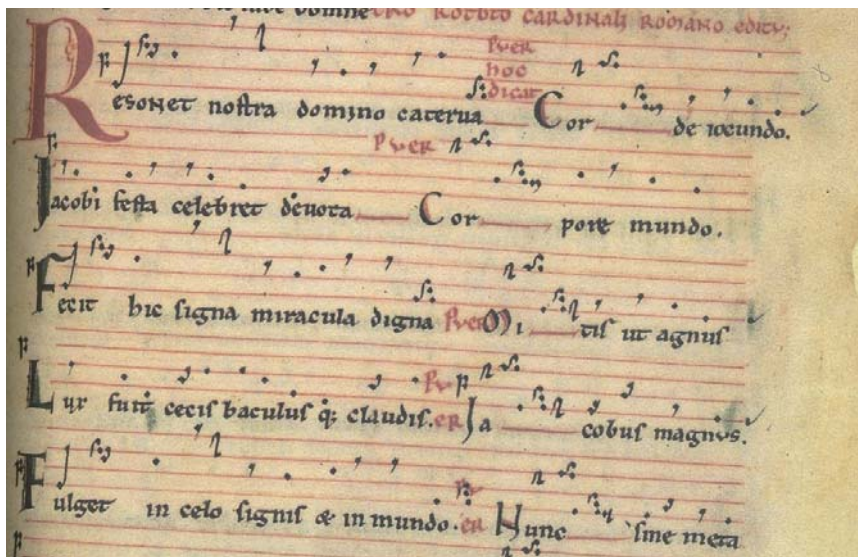 domne Rotbto cardinali romano edit⁹;
Puer
hoc
dicat
Resonet nostra domino caterua Cor de iocundo.
Puer
Jacobi festa celebret deuota Cor pore mundo.
Fecit hic signa miracula digna Puer Mi tis ut agnus
Lux fuit cecis baculus q; claudis. Puer Ja cobus magnus.
Fulget in celo signis & in mundo. Puer Hunc sine meta